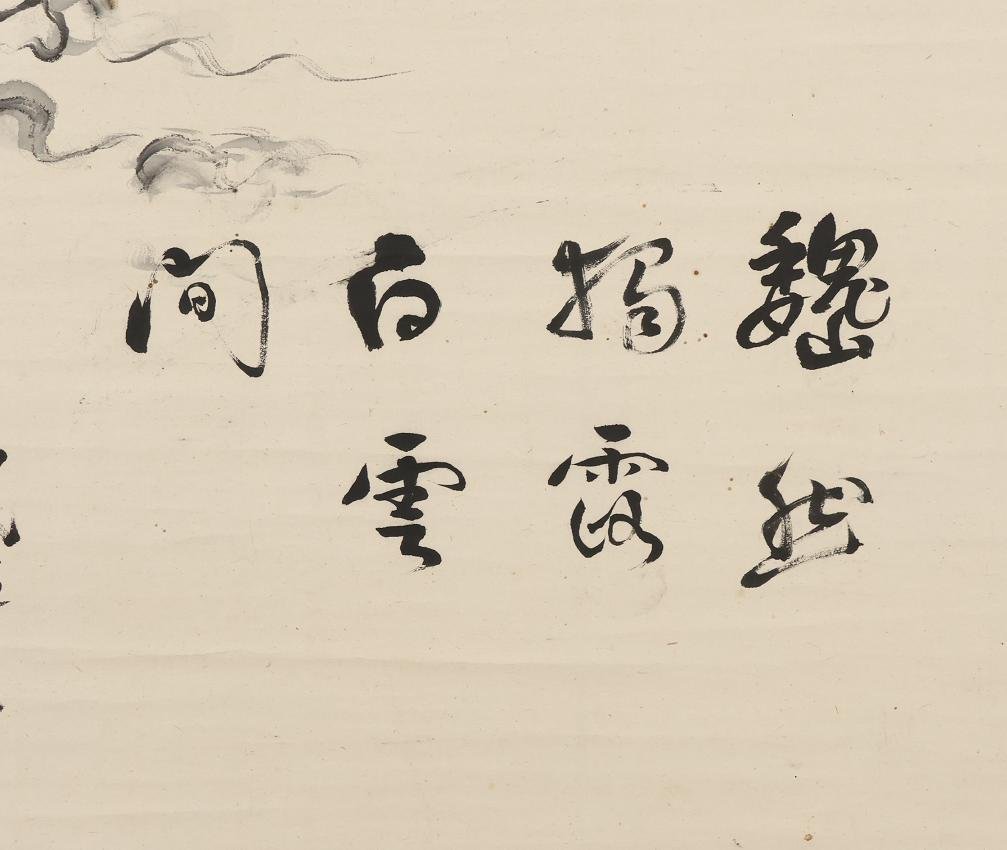 巍然
獨露
白雲
間